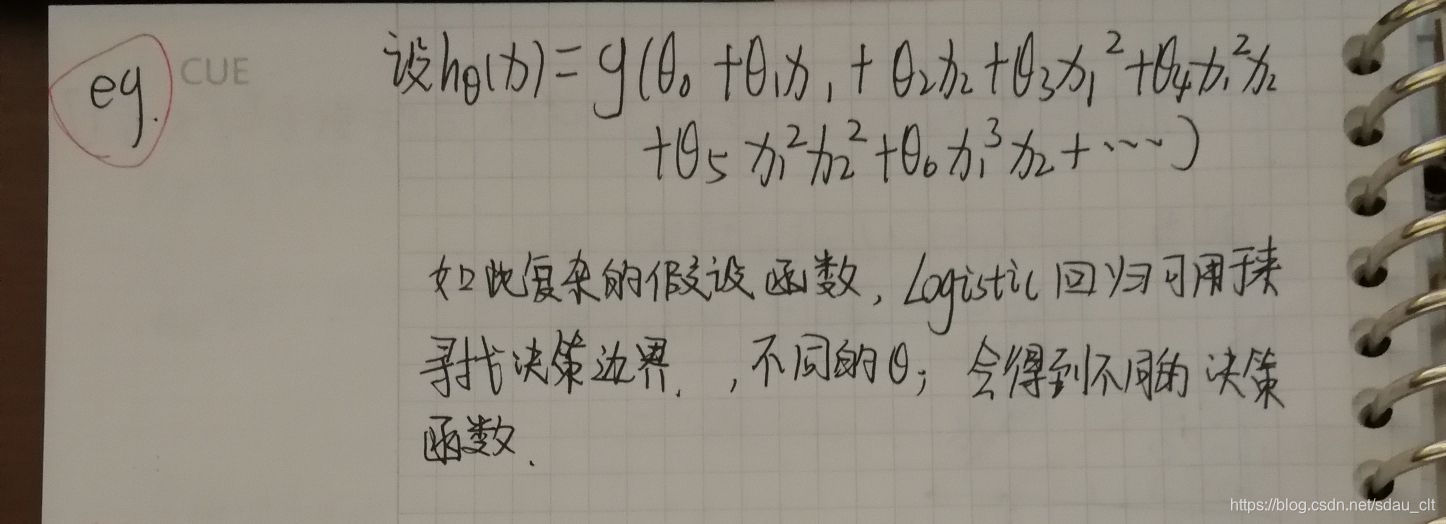 eg.
CUE
设hθ(x)=g(θ₀+θ₁x₁+θ₂x₂+θ₃x₁²+θ₄x₁²x₂
+θ₅x₁²x₂²+θ₆x₁³x₂+⋯)
如此复杂的假设函数,Logistic回归可用于来
寻找决策边界.,不同的θᵢ会得到不同的决策
函数.
https://blog.csdn.net/sdau_clt